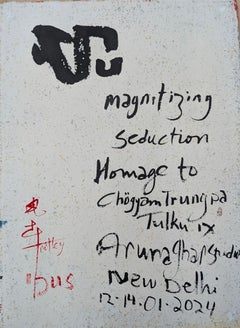 magnitizing
seduction
Homage to
Chögyam Trungpa
Tulku IX
New Delhi
12-14.01.2024
bus